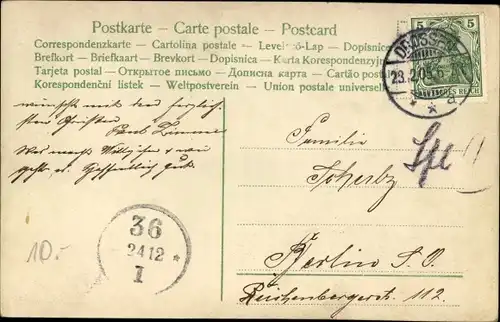 Postkarte – Carte postale – Postcard
Correspondenzkarte – Cartolina postale – Levelező-Lap – Dopisnice
Brefkort – Briefkaart – Brevkort – Dopisnica – Karta Korespondenzyjna
Tarjeta postal – Открытое письмо – Дописна карта – Cartão postal
Korespondenční lístek – Weltpostverein – Union postale universelle
5 5
DEUTSCHES REICH
DROSSEN
23.12.05
a
wünscht mit den herzlich-
sten Grüßen
Paul
Was macht
geht es. Hoffentlich gut.
Familie
Berlin S.O.
Reichenbergerstr. 112.
36
24 12
I
10.-